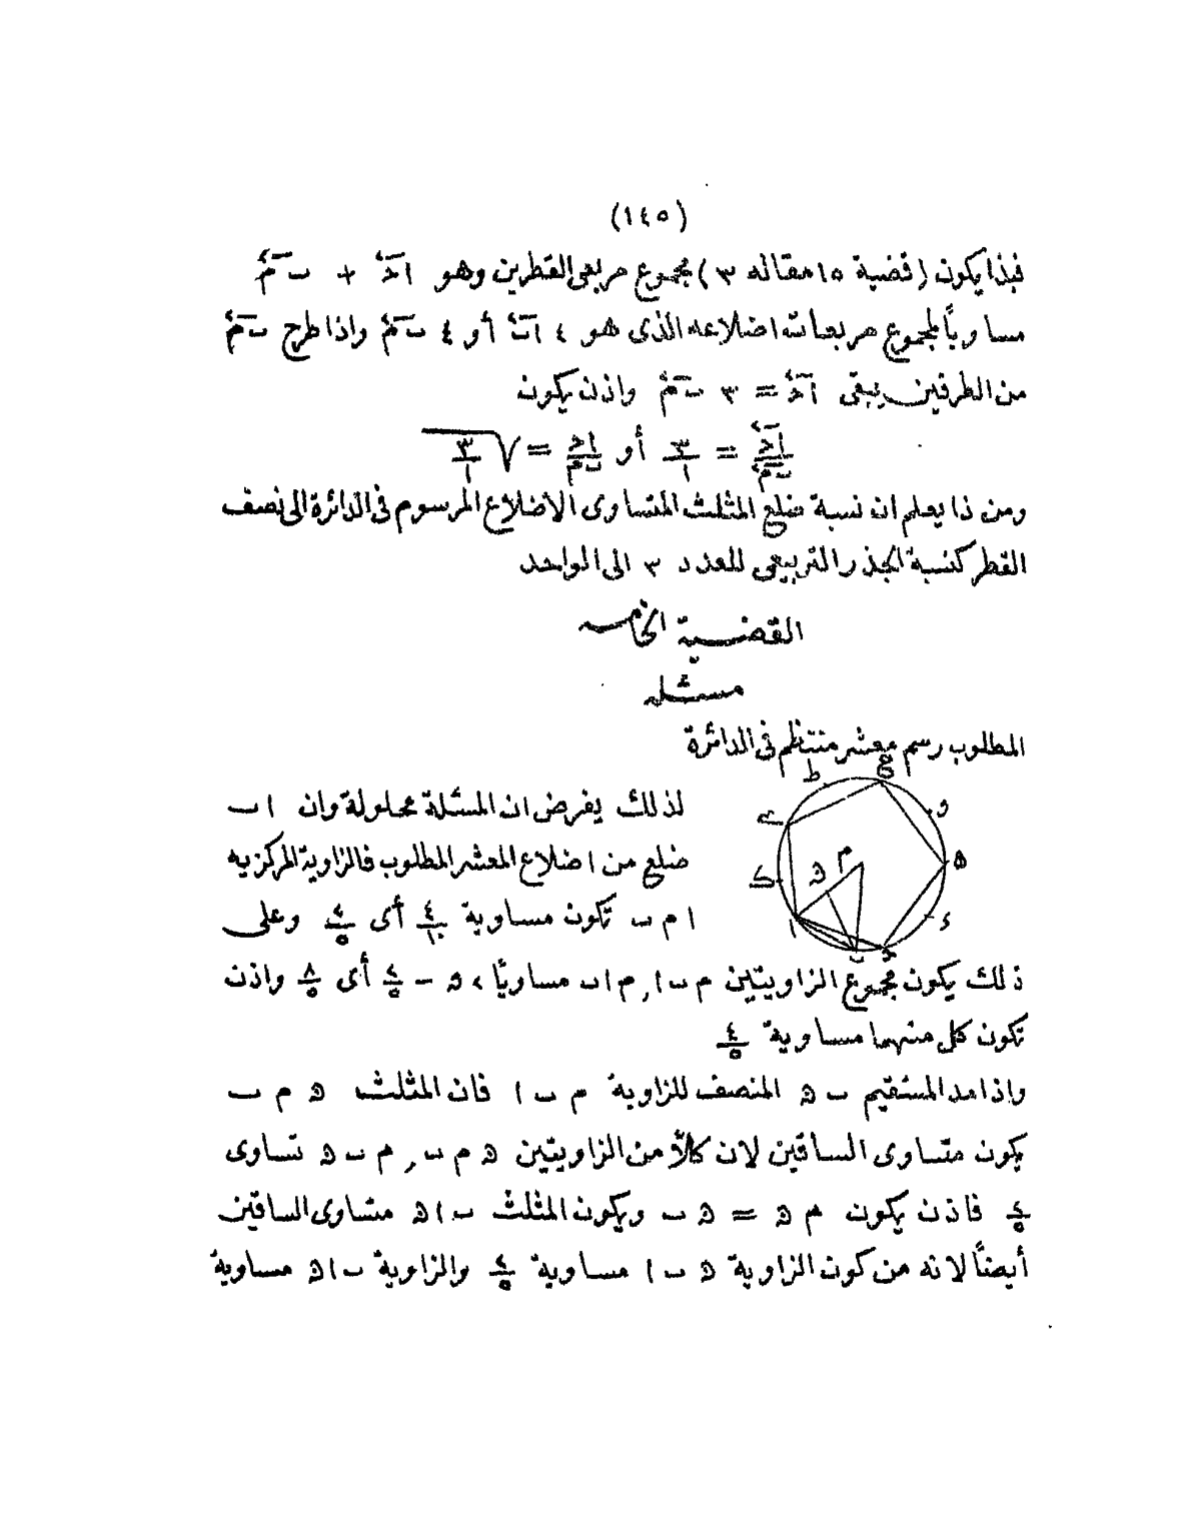 (١٤٥)
فبذا يكون (قضية ١٥ مقاله ٣) مجموع مربعى القطرين وهو احـ٢ + ىم٢
مساوياً لمجموع مربعات اضلاعه الذى هو ٤ اب٢ أو ٤ ىم٢ واذا طرح ىم٢
من الطرفين يبقى احـ٢ = ٣ ىم٢ واذن يكون
احـ٢/ىم٢ = ٣/١ أو احـ/ىم = √٣/١
ومن ذا يعلم ان نسبة ضلع المثلث المتساوى الاضلاع المرسوم فى الدائرة الى نصف
القطر كنسبة الجذر التربيعى للعدد ٣ الى الواحد
القضية الخامسه
مسئله
المطلوب رسم معشر منتظم فى الدائرة
لذلك يفرض ان المسئلة محلولة وان ا ب
ضلع من اضلاع المعشر المطلوب فالزاوية المركزيه
ا م ب تكون مساوية ٤/١٠ أى ٢/٥ وعلى
ذلك يكون مجموع الزاويتين م ب ا , م ا ب مساويًا ٢ ق - ٢/٥ أى ٨/٥ واذن
تكون كل منهما مساوية ٤/٥
واذا مد المستقيم ب ھ المنصف للزاوية م ب ا فان المثلث ھ م ب
يكون متساوى الساقين لان كلاً من الزاويتين ھ م ب , م ب ھ تساوى
٢/٥ فاذن يكون م ھ = ھ ب ويكون المثلث ب ا ھ متساوى الساقين
أيضاً لانه من كون الزاوية ھ ب ا مساوية ٢/٥ والزاوية ب ا ھ مساوية